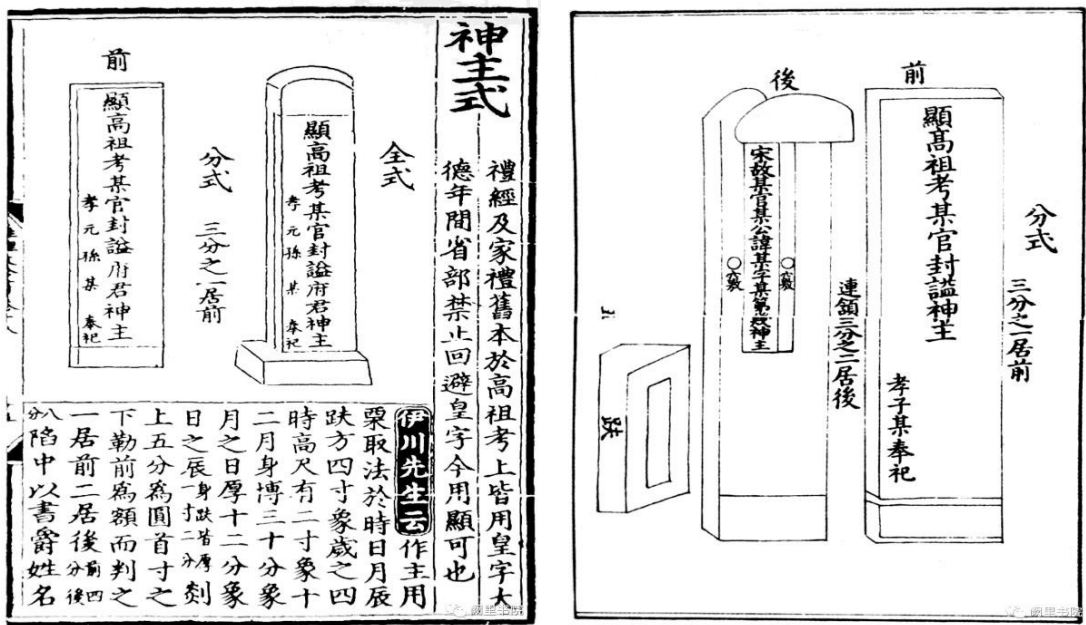 神主式
禮經及家禮舊本於高祖考上皆用皇字大
德年間省部禁止回避皇字今用顯可也
全式
顯高祖考某官封謚府君神主
孝元孫某 奉祀
分式 三分之一居前
前
顯高祖考某官封謚府君神主
孝元孫某 奉祀
伊川先生云作主用
栗取法於時日月辰
趺方四寸象歲之四
時高尺有二寸象十
二月身博三十分象
月之日厚十二分象
日之辰身趺皆厚一寸二分剡
上五分爲圓首寸之
下勒前爲額而判之
一居前二居後前四分後
八分陷中以書爵姓名
阙里书院
分式 三分之一居前
前
顯高祖考某官封謚神主
孝子某奉祀
後
連領三分之二居後
宋故某官某公諱某字某第幾神主
竅
竅
趺
阙里书院